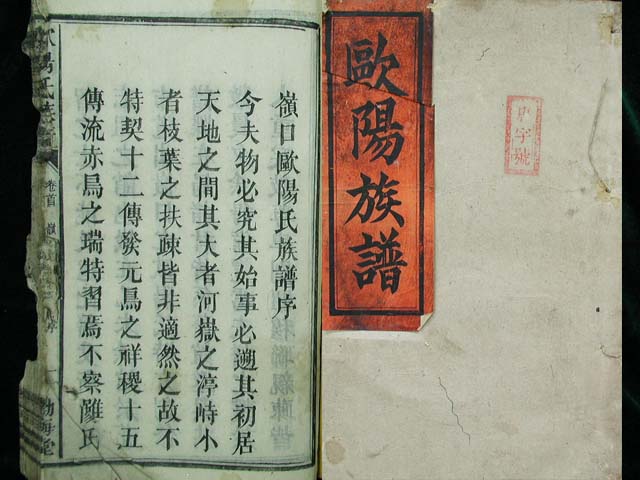 歐陽族譜
字號
嶺口歐陽氏族譜序
今夫物必究其始事必遡其初居
天地之間其大者河嶽之渟峙小
者枝葉之扶疎皆非適然之故不
特契十二傳發元鳥之祥稷十五
傳流赤烏之瑞特習焉不察雖氏
卷首
渤海堂